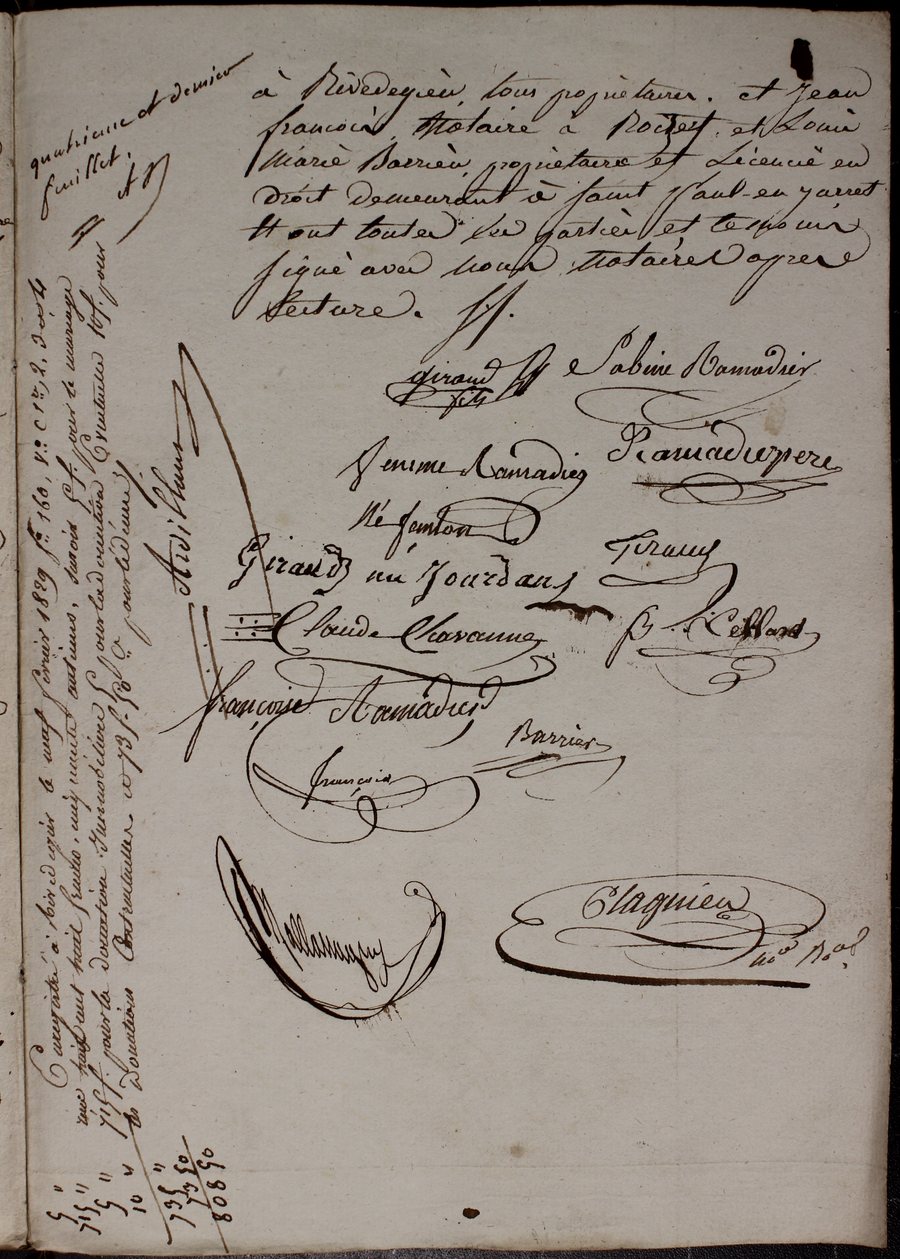 quatrieme et dernier
feuillet.
à Rivedegier, tous propriétaires. et Jean
françois, Notaire à Roizey, et Louis
Marie Barrier, propriétaire et Licencié en
droit demeurant à Saint Paul-en-Jarret
Et ont toutes les parties et temoins
signé avec nous Notaires apres
Lecture.
giraud
fils
Sabine Ramadier
femme Ramadier
Ramadier pere
Né fenton
Giraud née Jourdans
Giraud
Claude Chavanne
françoise Ramadier
Barrier
françois
Enregistré à Rivedegier le neuf février 1829 fo. 160, Vo. C 1re, 2, 3 et 4
reçu sept cent huit francs, cinquante centimes, savoir 5 f. pour le mariage
715 f. pour la donation Immobilière, 5 f. pour la donation Eventuelle 10 f. pour
les Donations Eventuelles et 73 f. 50 c. pour le décime
5 "
715 "
5 "
10 "
735 "
73 50
808 50
Plagnieu